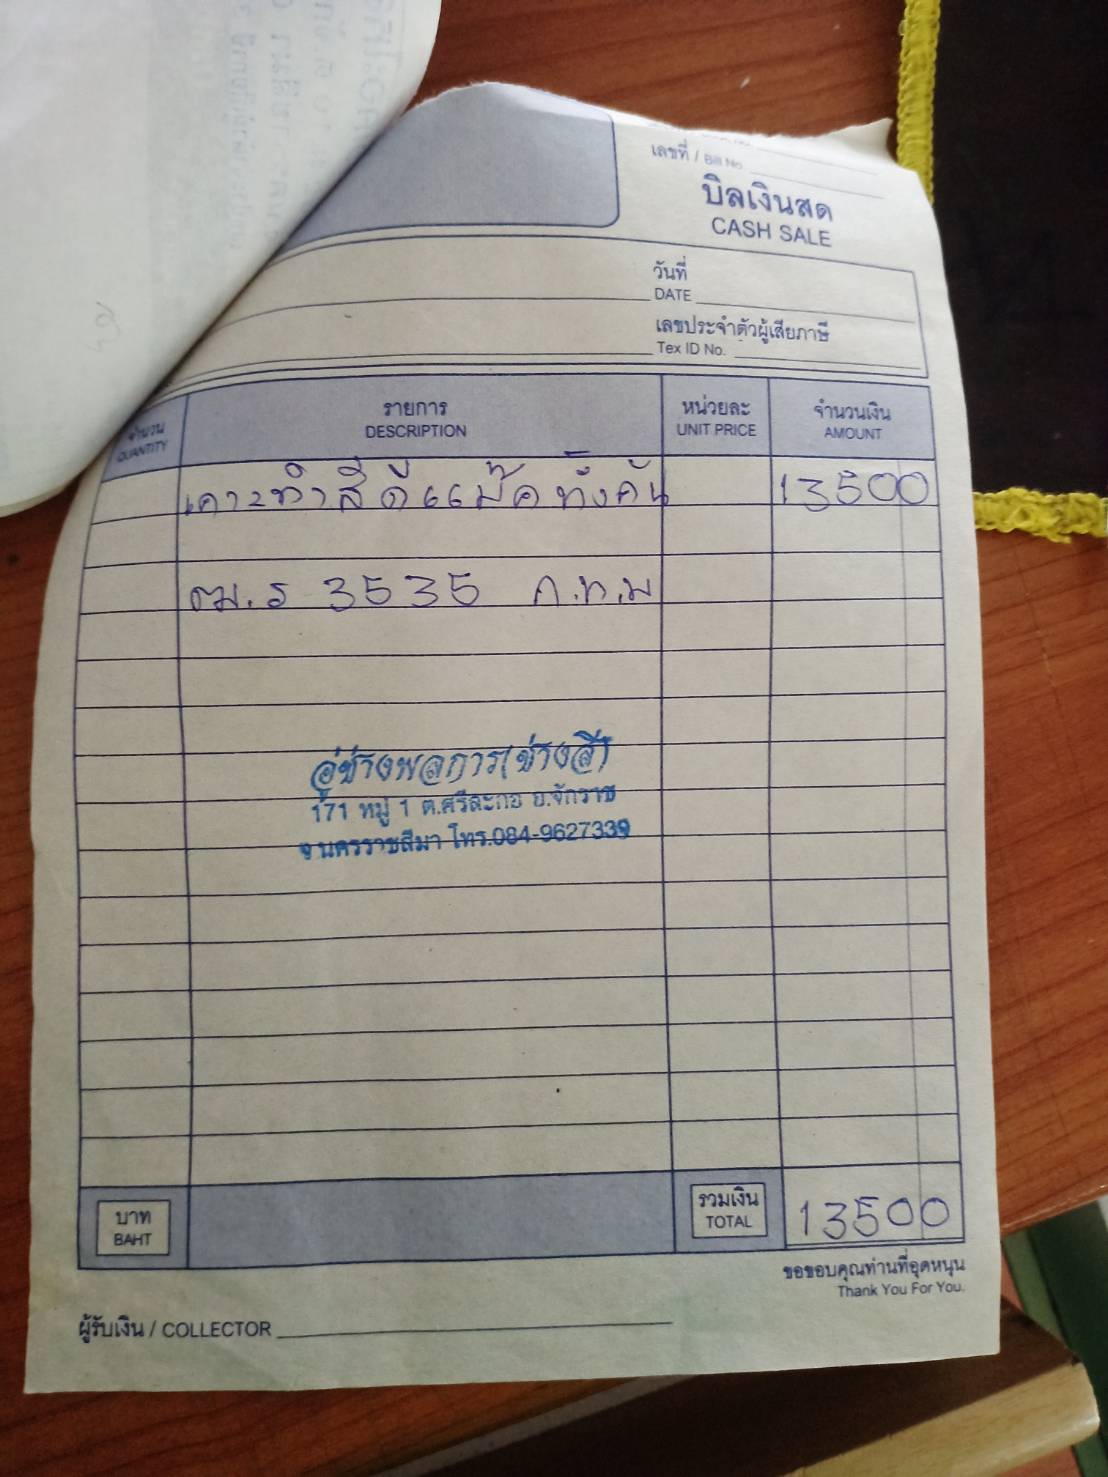 เลขที่ / Bill No
บิลเงินสด
CASH SALE
วันที่
DATE
เลขประจำตัวผู้เสียภาษี
Tex ID No.
จำนวน
QUANTITY
รายการ
DESCRIPTION
หน่วยละ
UNIT PRICE
จำนวนเงิน
AMOUNT
เคาะทำสีดีแม๊คทั้งคัน 13500
ฒ.ร 3535 ก.ท.ม
อู่ช่างพลการ(ช่างสี)
171 หมู่ 1 ต.ศรีละกอ อ.จักราช
จ.นครราชสีมา โทร.084-9627339
บาท
BAHT
รวมเงิน
TOTAL
13500
ขอขอบคุณท่านที่อุดหนุน
Thank You For You.
ผู้รับเงิน / COLLECTOR